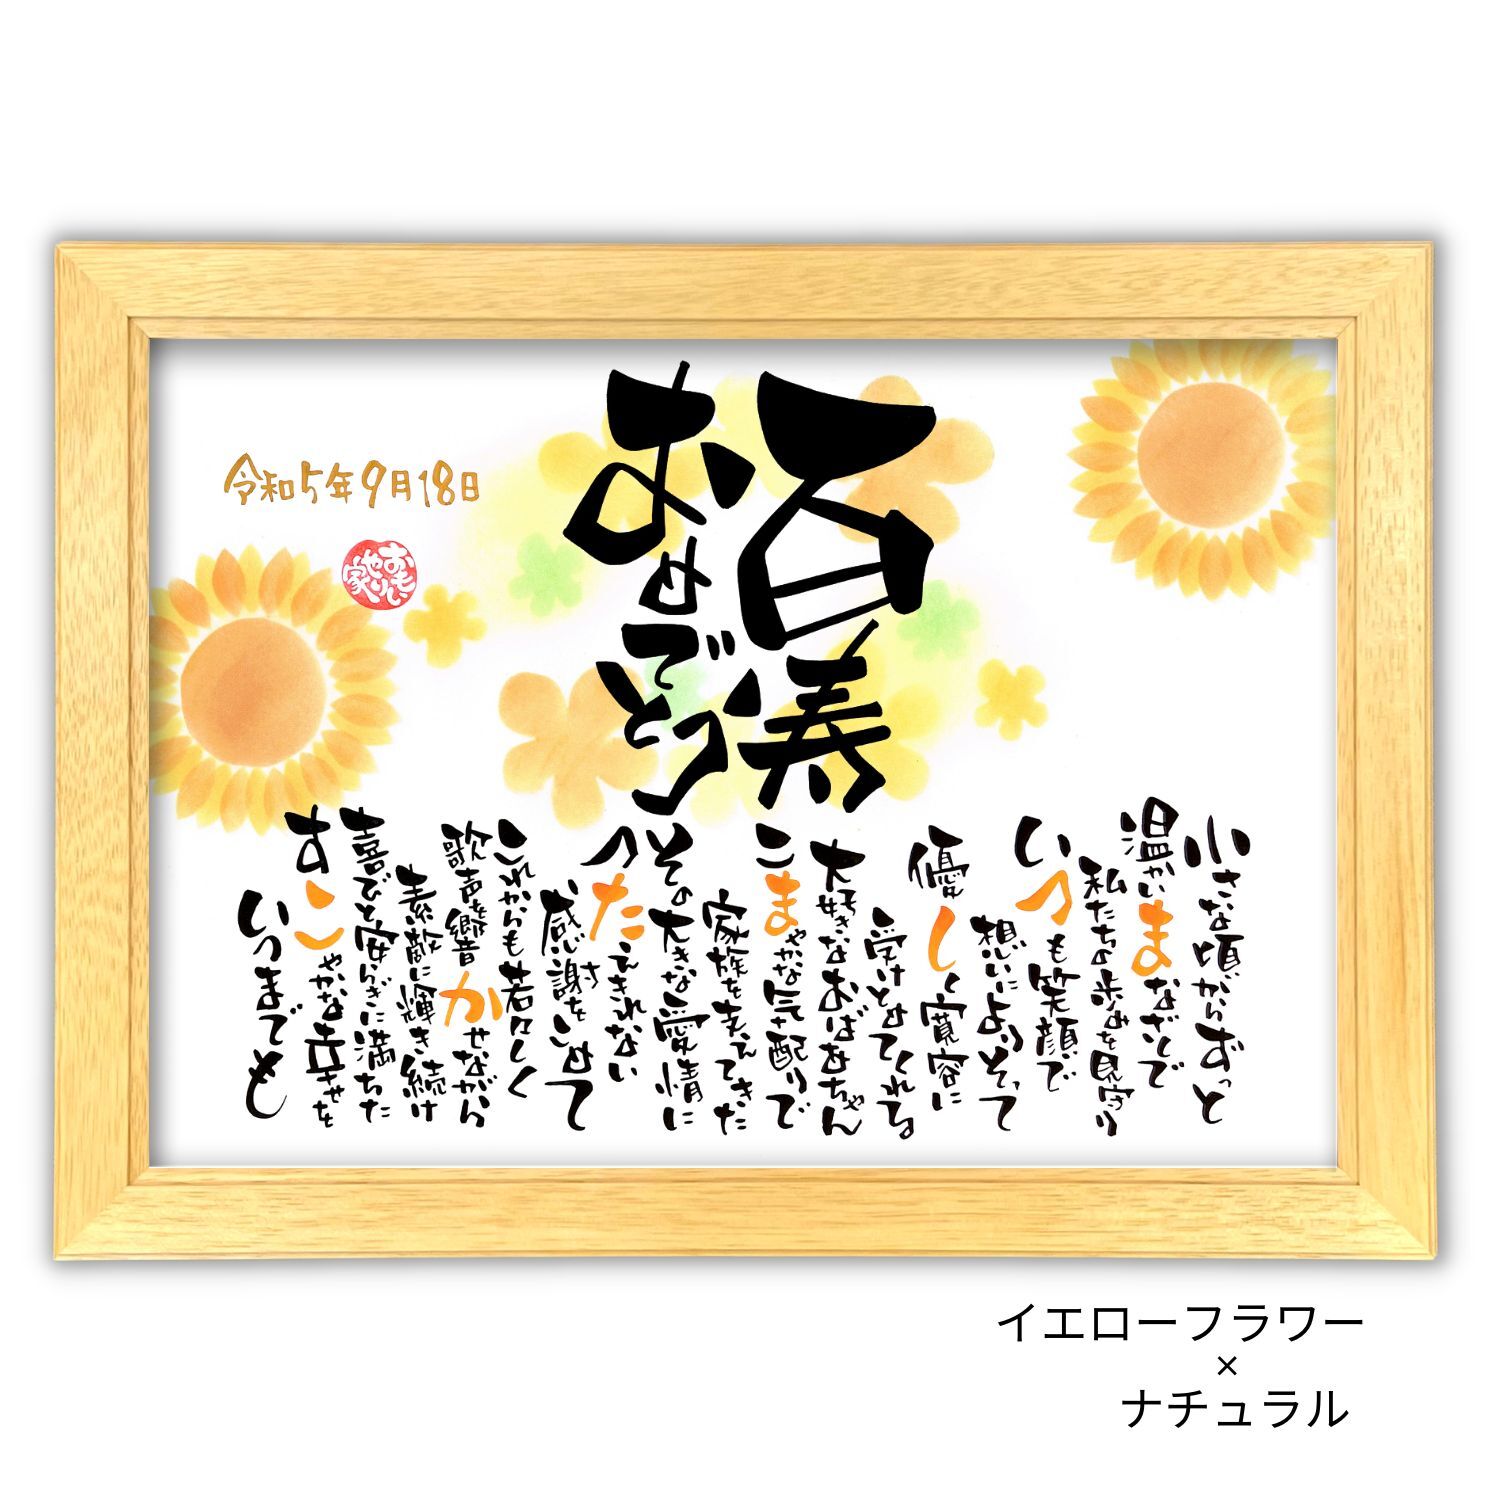 百寿
おめでとう
令和5年9月18日
おもいやり家
小さな頃からずっと
温かいまなざしで
私たちの歩みを見守り
いつも笑顔で
想いによりそって
優しく寛容に
受けとめてくれる
大好きなおばあちゃん
こまやかな気配りで
家族を支えてきた
その大きな愛情に
つたえきれない
感謝をこめて
これからも若々しく
歌声を響かせながら
素敵に輝き続け
喜びと安らぎに満ちた
すこやかな幸せを
いつまでも
イエローフラワー
×
ナチュラル